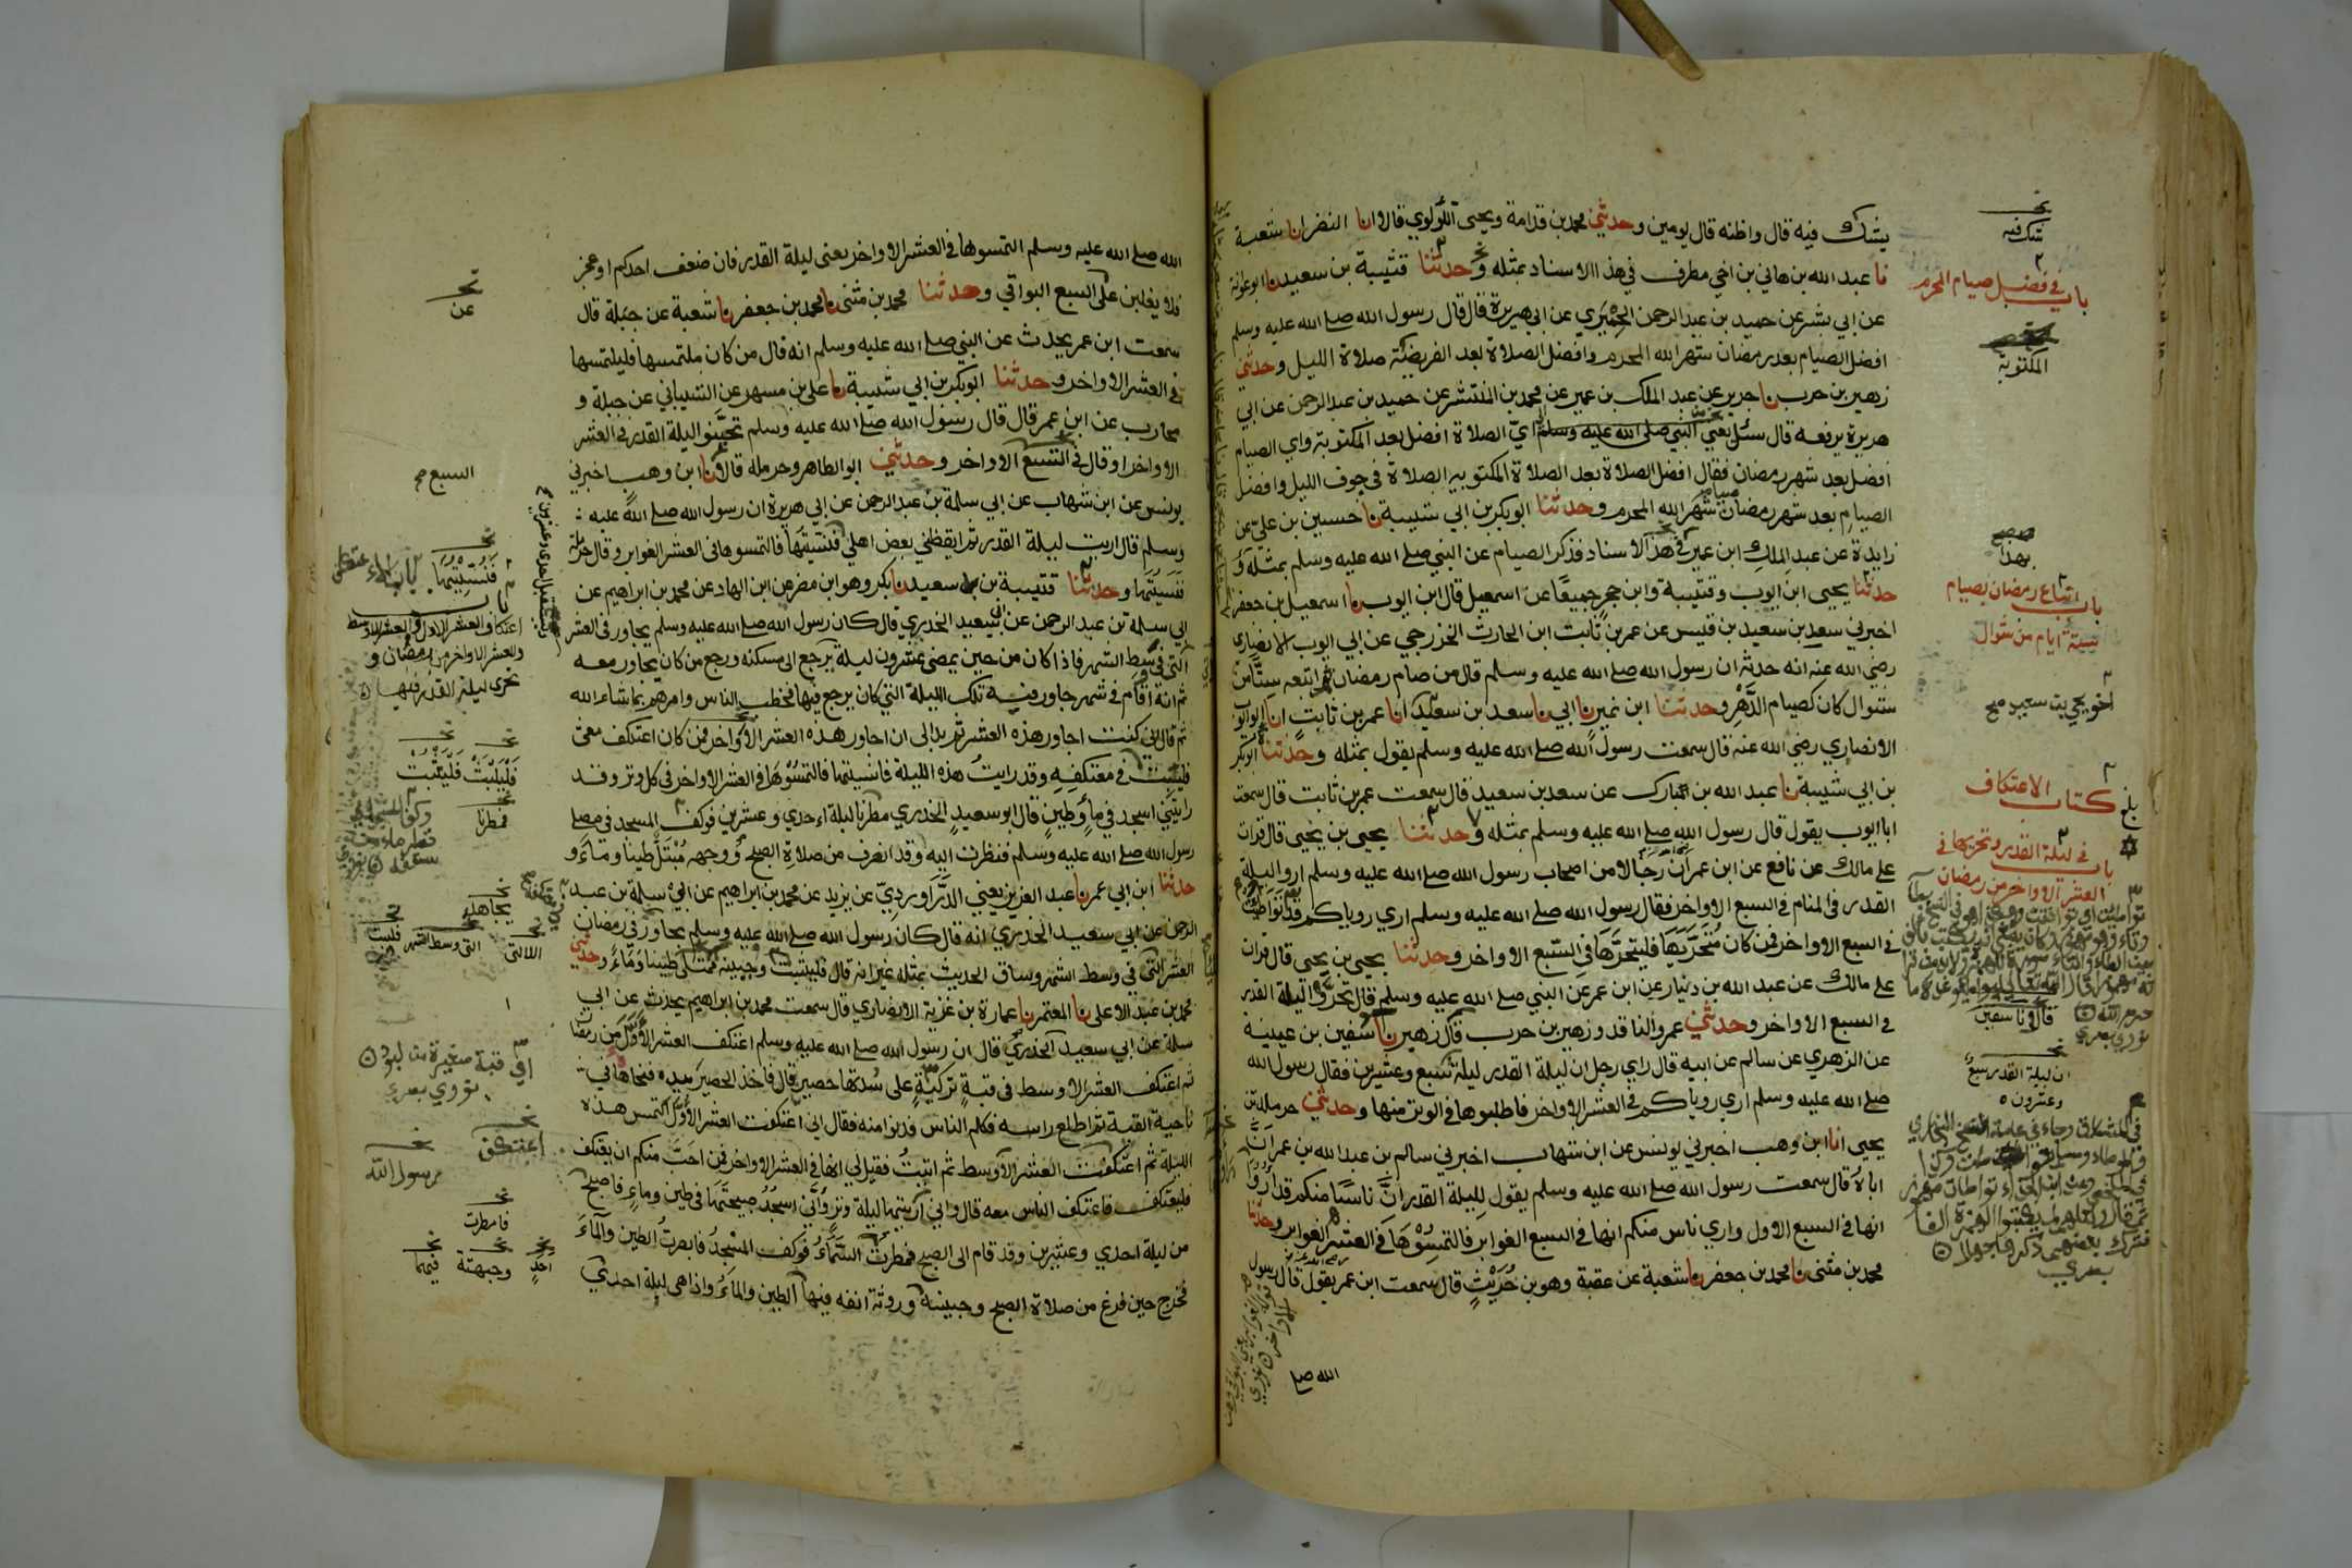 يشك فيه قال واظنه قال يومين وحدثني محمد بن قدامة ويحيى اللؤلوي قالا انا النضر انا شعبة
نا عبد الله بن هاني بن اخي مطرف في هذا الاسناد بمثله وحدثنا قتيبة بن سعيد نا ابو عوانة
عن ابي بشر عن حميد بن عبد الرحمن الحميري عن ابي هريرة قال قال رسول الله صلى الله عليه وسلم
افضل الصيام بعد رمضان شهر الله المحرم وافضل الصلاة بعد الفريضة صلاة الليل وحدثني
زهير بن حرب نا جرير عن عبد الملك بن عمير عن محمد بن المنتشر عن حميد بن عبد الرحمن عن ابي
هريرة يرفعه قال سئل يعني النبي صلى الله عليه وسلم اي الصلاة افضل بعد المكتوبة واي الصيام
افضل بعد شهر رمضان فقال افضل الصلاة بعد الصلاة المكتوبه الصلاة في جوف الليل وافضل
الصيام بعد شهر رمضان صيام شهر الله المحرم وحدثنا ابو بكر بن ابي شيبة نا حسين بن علي عن
زايدة عن عبد الملك ابن عمير في هذا الاسناد فذكر الصيام عن النبي صلى الله عليه وسلم بمثله و
حدثنا يحيى ابن ايوب وقتيبة وابن حجر جميعا عن اسمعيل قال ابن ايوب نا اسمعيل بن جعفر
اخبرني سعد بن سعيد بن قيس عن عمر بن ثابت ابن الحارث الخزرجي عن ابي ايوب الانصاري
رضي الله عنه انه حدثه ان رسول الله صلى الله عليه وسلم قال من صام رمضان ثم اتبعه ستا من
شوال كان كصيام الدهر وحدثنا ابن نمير نا ابي نا سعد بن سعيد انا عمر بن ثابت انا ابو ايوب
الانصاري رضي الله عنه قال سمعت رسول الله صلى الله عليه وسلم يقول بمثله وحدثنا ابو بكر
بن ابي شيبة نا عبد الله بن مبارك عن سعد بن سعيد قال سمعت عمر بن ثابت قال سمعت
ابا ايوب يقول قال رسول الله صلى الله عليه وسلم بمثله وحدثنا يحيى بن يحيى قال قرات
على مالك عن نافع عن ابن عمر ان رجالا من اصحاب رسول الله صلى الله عليه وسلم اروا ليلة
القدر في المنام في السبع الاواخر فقال رسول الله صلى الله عليه وسلم اري روياكم قد تواطت
في السبع الاواخر فمن كان متحريها فليتحرها في السبع الاواخر وحدثنا يحيى بن يحيى قال قرات
على مالك عن عبد الله بن دينار عن ابن عمر عن النبي صلى الله عليه وسلم قال تحروا ليلة القدر
في السبع الاواخر وحدثني عمرو الناقد وزهير بن حرب قال زهير نا سفين بن عيينة
عن الزهري عن سالم عن ابيه قال راي رجل ان ليلة القدر ليلة سبع وعشرين فقال رسول الله
صلى الله عليه وسلم اري روياكم في العشر الاواخر فاطلبوها في الوتر منها وحدثني حرملة بن
يحيى انا ابن وهب اخبرني يونس عن ابن شهاب اخبرني سالم بن عبد الله بن عمر ان
اباه قال سمعت رسول الله صلى الله عليه وسلم يقول لليلة القدر ان ناسا منكم قد اروا
انها في السبع الاول واري ناس منكم انها في السبع الغوابر فالتمسوها في العشر الغوابر وحدثنا
محمد بن مثنى نا محمد بن جعفر نا شعبة عن عقبة وهو بن حريث قال سمعت ابن عمر يقول قال رسول
الله صلى
شك فيه
باب في فضل صيام المحرم
المكتوبة
بهذا
باب اتباع رمضان بصيام
ستة ايام من شوال
اخو يحيى بن سعيد صح
كتاب الاعتكاف
باب في ليلة القدر وتحريها في
العشر الاواخر من رمضان
قال نا سفين
ان ليلة القدر سبع
وعشرون
الله صلى الله عليه وسلم التمسوها في العشر الاواخر يعني ليلة القدر فان ضعف احدكم او عجز
فلا يغلبن على السبع البواقي وحدثنا محمد بن مثنى نا محمد بن جعفر نا شعبة عن جبلة قال
سمعت ابن عمر يحدث عن النبي صلى الله عليه وسلم انه قال من كان ملتمسها فليلتمسها
في العشر الاواخر وحدثنا ابو بكر بن ابي شيبة نا علي بن مسهر عن الشيباني عن جبلة و
محارب عن ابن عمر قال قال رسول الله صلى الله عليه وسلم تحينوا ليلة القدر في العشر
الاواخر او قال في التسع الاواخر وحدثني ابو الطاهر وحرملة قالا نا ابن وهب اخبرني
يونس عن ابن شهاب عن ابي سلمة بن عبد الرحمن عن ابي هريرة ان رسول الله صلى الله عليه
وسلم قال اريت ليلة القدر ثم ايقظني بعض اهلي فنسيتها فالتمسوها في العشر الغوابر وقال حرملة
نسيتها وحدثنا قتيبة بن سعيد نا بكر وهو ابن مضر عن ابن الهاد عن محمد بن ابراهيم عن
ابي سلمة بن عبد الرحمن عن ابي سعيد الخدري قال كان رسول الله صلى الله عليه وسلم يجاور في العشر
التي في وسط الشهر فاذا كان من حين يمضي عشرون ليلة يرجع الى مسكنه ورجع من كان يجاور معه
ثم انه اقام في شهر جاور فيه تلك الليلة التي كان يرجع فيها فخطب الناس وامرهم بما شاء الله
ثم قال اني كنت اجاور هذه العشر ثم بدا لي ان اجاور هذه العشر الاواخر فمن كان اعتكف معي
فليبت في معتكفه وقد رايت هذه الليلة فانسيتها فالتمسوها في العشر الاواخر في كل وتر وقد
رايتني اسجد في ماء وطين قال ابو سعيد الخدري مطرنا ليلة احدي وعشرين فوكف المسجد في مصلى
رسول الله صلى الله عليه وسلم فنظرت اليه وقد انصرف من صلاة الصبح ووجهه مبتل طينا وماء و
حدثنا ابن ابي عمر نا عبد العزيز يعني الدراوردي عن يزيد عن محمد بن ابراهيم عن ابي سلمة بن عبد
الرحمن عن ابي سعيد الخدري انه قال كان رسول الله صلى الله عليه وسلم يجاور في رمضان
العشر التي في وسط الشهر وساق الحديث بمثله غير انه قال فليثبت وجبينه ممتلئ طينا وماء وحدثني
محمد بن عبد الاعلى نا المعتمر نا عمارة بن غزية الانصاري قال سمعت محمد بن ابراهيم يحدث عن ابي
سلمة عن ابي سعيد الخدري قال ان رسول الله صلى الله عليه وسلم اعتكف العشر الاول من رمضان
ثم اعتكف العشر الاوسط في قبة تركية على سدتها حصير قال فاخذ الحصير بيده فنحاها في
ناحية القبة ثم اطلع راسه فكلم الناس فدنوا منه فقال اني اعتكفت العشر الاول التمس هذه
الليلة ثم اعتكفت العشر الاوسط ثم اتيت فقيل لي انها في العشر الاواخر فمن احب منكم ان يعتكف
فليعتكف فاعتكف الناس معه قال واني اريتها ليلة وتر واني اسجد صبيحتها في طين وماء فاصبح
من ليلة احدي وعشرين وقد قام الى الصبح فمطرت السماء فوكف المسجد فابصرت الطين والماء
فخرج حين فرغ من صلاة الصبح وجبينه وروثة انفه فيها الطين والماء واذا هي ليلة احدي
عن
السبع صح
فنسيتها
باب
اعتكاف العشر الاول والعشر الاوسط
والعشر الاواخر من رمضان و
تحري ليلة القدر فيها
فليلبث فليثبت
فمطرنا
التي وسط الشهر
اي قبة صغيرة من لبود
نووي
اعتكف
رسول الله
فامطرت
وجبهته فيهما